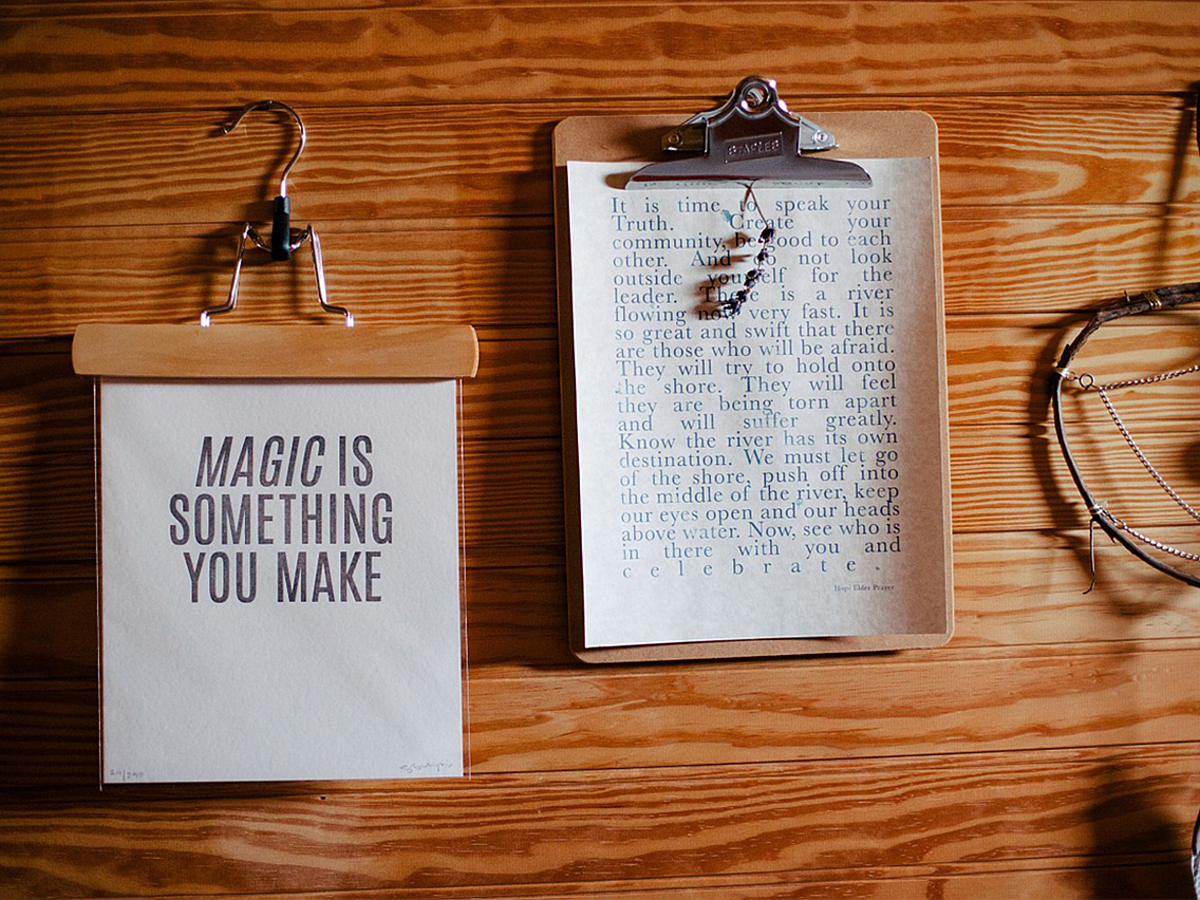 MAGIC IS
SOMETHING
YOU MAKE
STAPLES
It is time to speak your
Truth. Create your
community, be good to each
other. And do not look
outside yourself for the
leader. There is a river
flowing now very fast. It is
so great and swift that there
are those who will be afraid.
They will try to hold onto
the shore. They will feel
they are being torn apart
and will suffer greatly.
Know the river has its own
destination. We must let go
of the shore, push off into
the middle of the river, keep
our eyes open and our heads
above water. Now, see who is
in there with you and
celebrate.
Hopi Elder Prayer